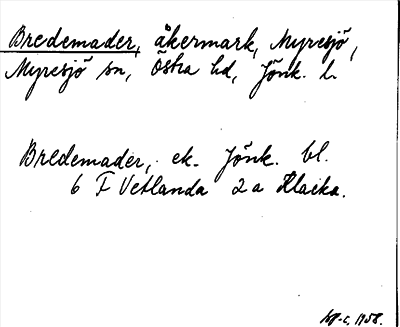 Bredemader, åkermark, Myresjö,
Myresjö sn, Östra hd, Jönk. l.
Bredemader, ek. Jönk. bl.
6 F Vetlanda 2a Klacka.
1958.